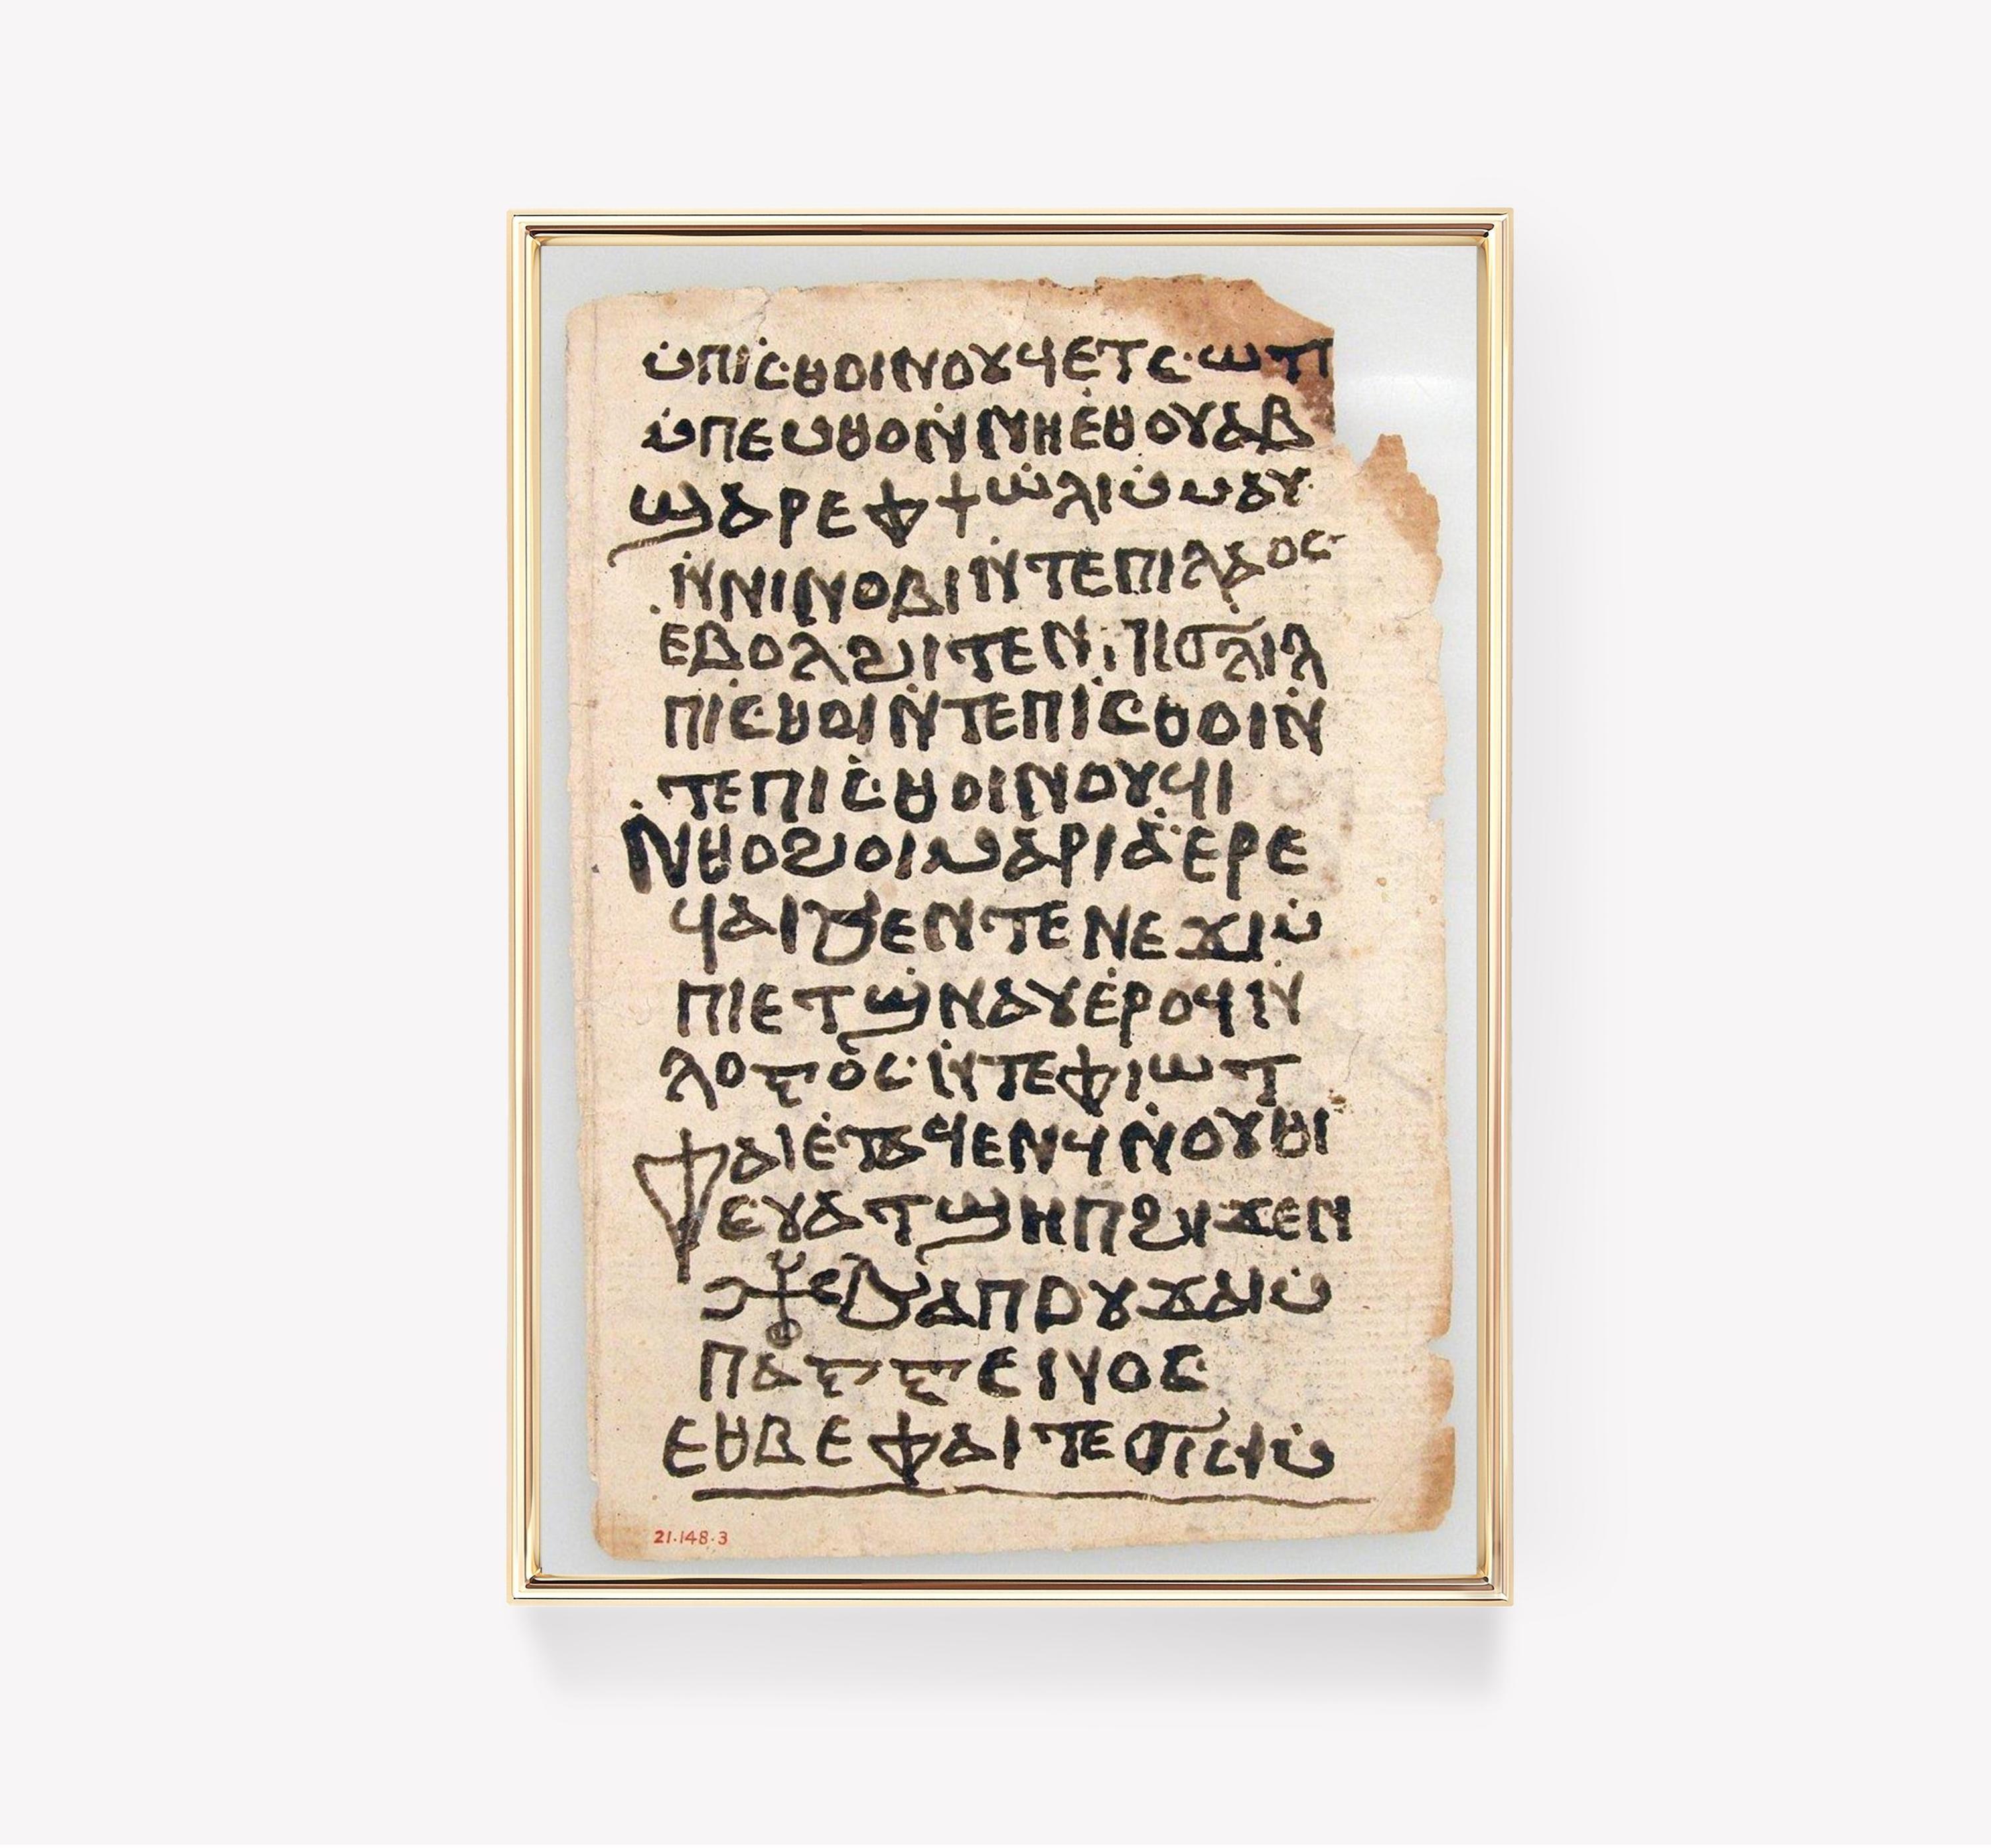 ⲙ̇ⲡⲓⲥⲑⲟⲓⲛⲟⲩϥⲉⲧⲥⲱⲧⲡ
ⲙ̇ⲡⲉⲙⲑⲟⲛ̇ⲛⲏⲉ̇ⲑⲟⲩⲁⲃ
ϣⲁⲣⲉⲫϯⲱ̇ⲗⲓⲙ̇ⲙⲁⲩ
ⲛ̇ⲛⲓⲛⲟⲃⲓⲛ̇ⲧⲉⲡⲓⲗⲁⲟⲥ
ⲉⲃⲟⲗϩⲓⲧⲉⲛⲡⲓϭⲗⲓⲗ
ⲡⲓⲥⲑⲟⲓⲛ̇ⲧⲉⲡⲓⲥⲑⲟⲓⲛ̇
ⲧⲉⲡⲓⲥⲑⲟⲓⲛⲟⲩϥⲓ
ⲛ̇ⲑⲟϩⲟⲓⲙⲁⲣⲓⲁ̇ⲉⲣⲉ
ϥⲁⲓϧⲉⲛⲧⲉⲛⲉϫⲓⲙ̇
ⲡⲓⲉⲧϣⲛⲁⲩⲉ̇ⲣⲟϥⲛ̇
ⲗⲟⲅⲟⲥⲛ̇ⲧⲉⲫⲓⲱⲧ
ⲫⲁⲓⲉ̇ⲧⲁϥⲉⲛϥⲛ̇ⲟⲩⲑⲓ
ⲉⲩⲁⲧϣⲏⲡϩⲓϫⲉⲛ
ϧⲁⲡⲟⲩϫⲁⲓⲙ̇
ⲡⲁⲅⲅⲉⲛⲟⲥ
ⲉⲑⲃⲉⲫⲁⲓⲧⲉ
21.148.3